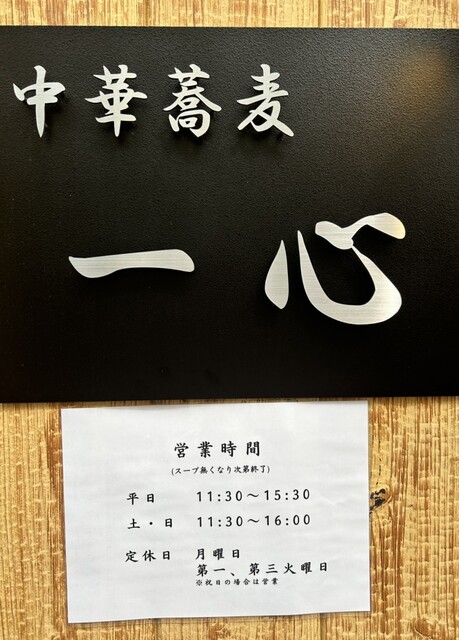 中華蕎麦
一心
営業時間
(スープ無くなり次第終了)
平日 11:30～15:30
土・日 11:30～16:00
定休日 月曜日
第一、第三火曜日
※祝日の場合は営業